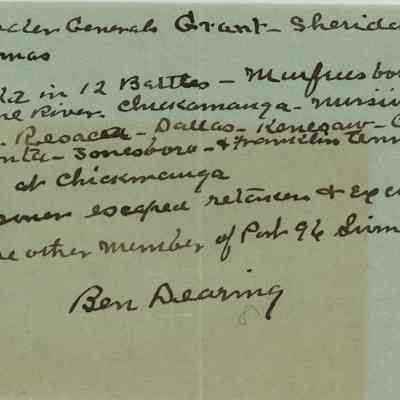 under Generals Grant - Sheridan
mas
in 12 Battles - Murfreesboro
River. Chickamauga - Missi
Resacca - Dallas - Kenesaw -
nta - Jonesboro - & Franklin Tenn
at Chickmauga
escaped retaken & Ex
other Member of Post 96
Ben Dearing